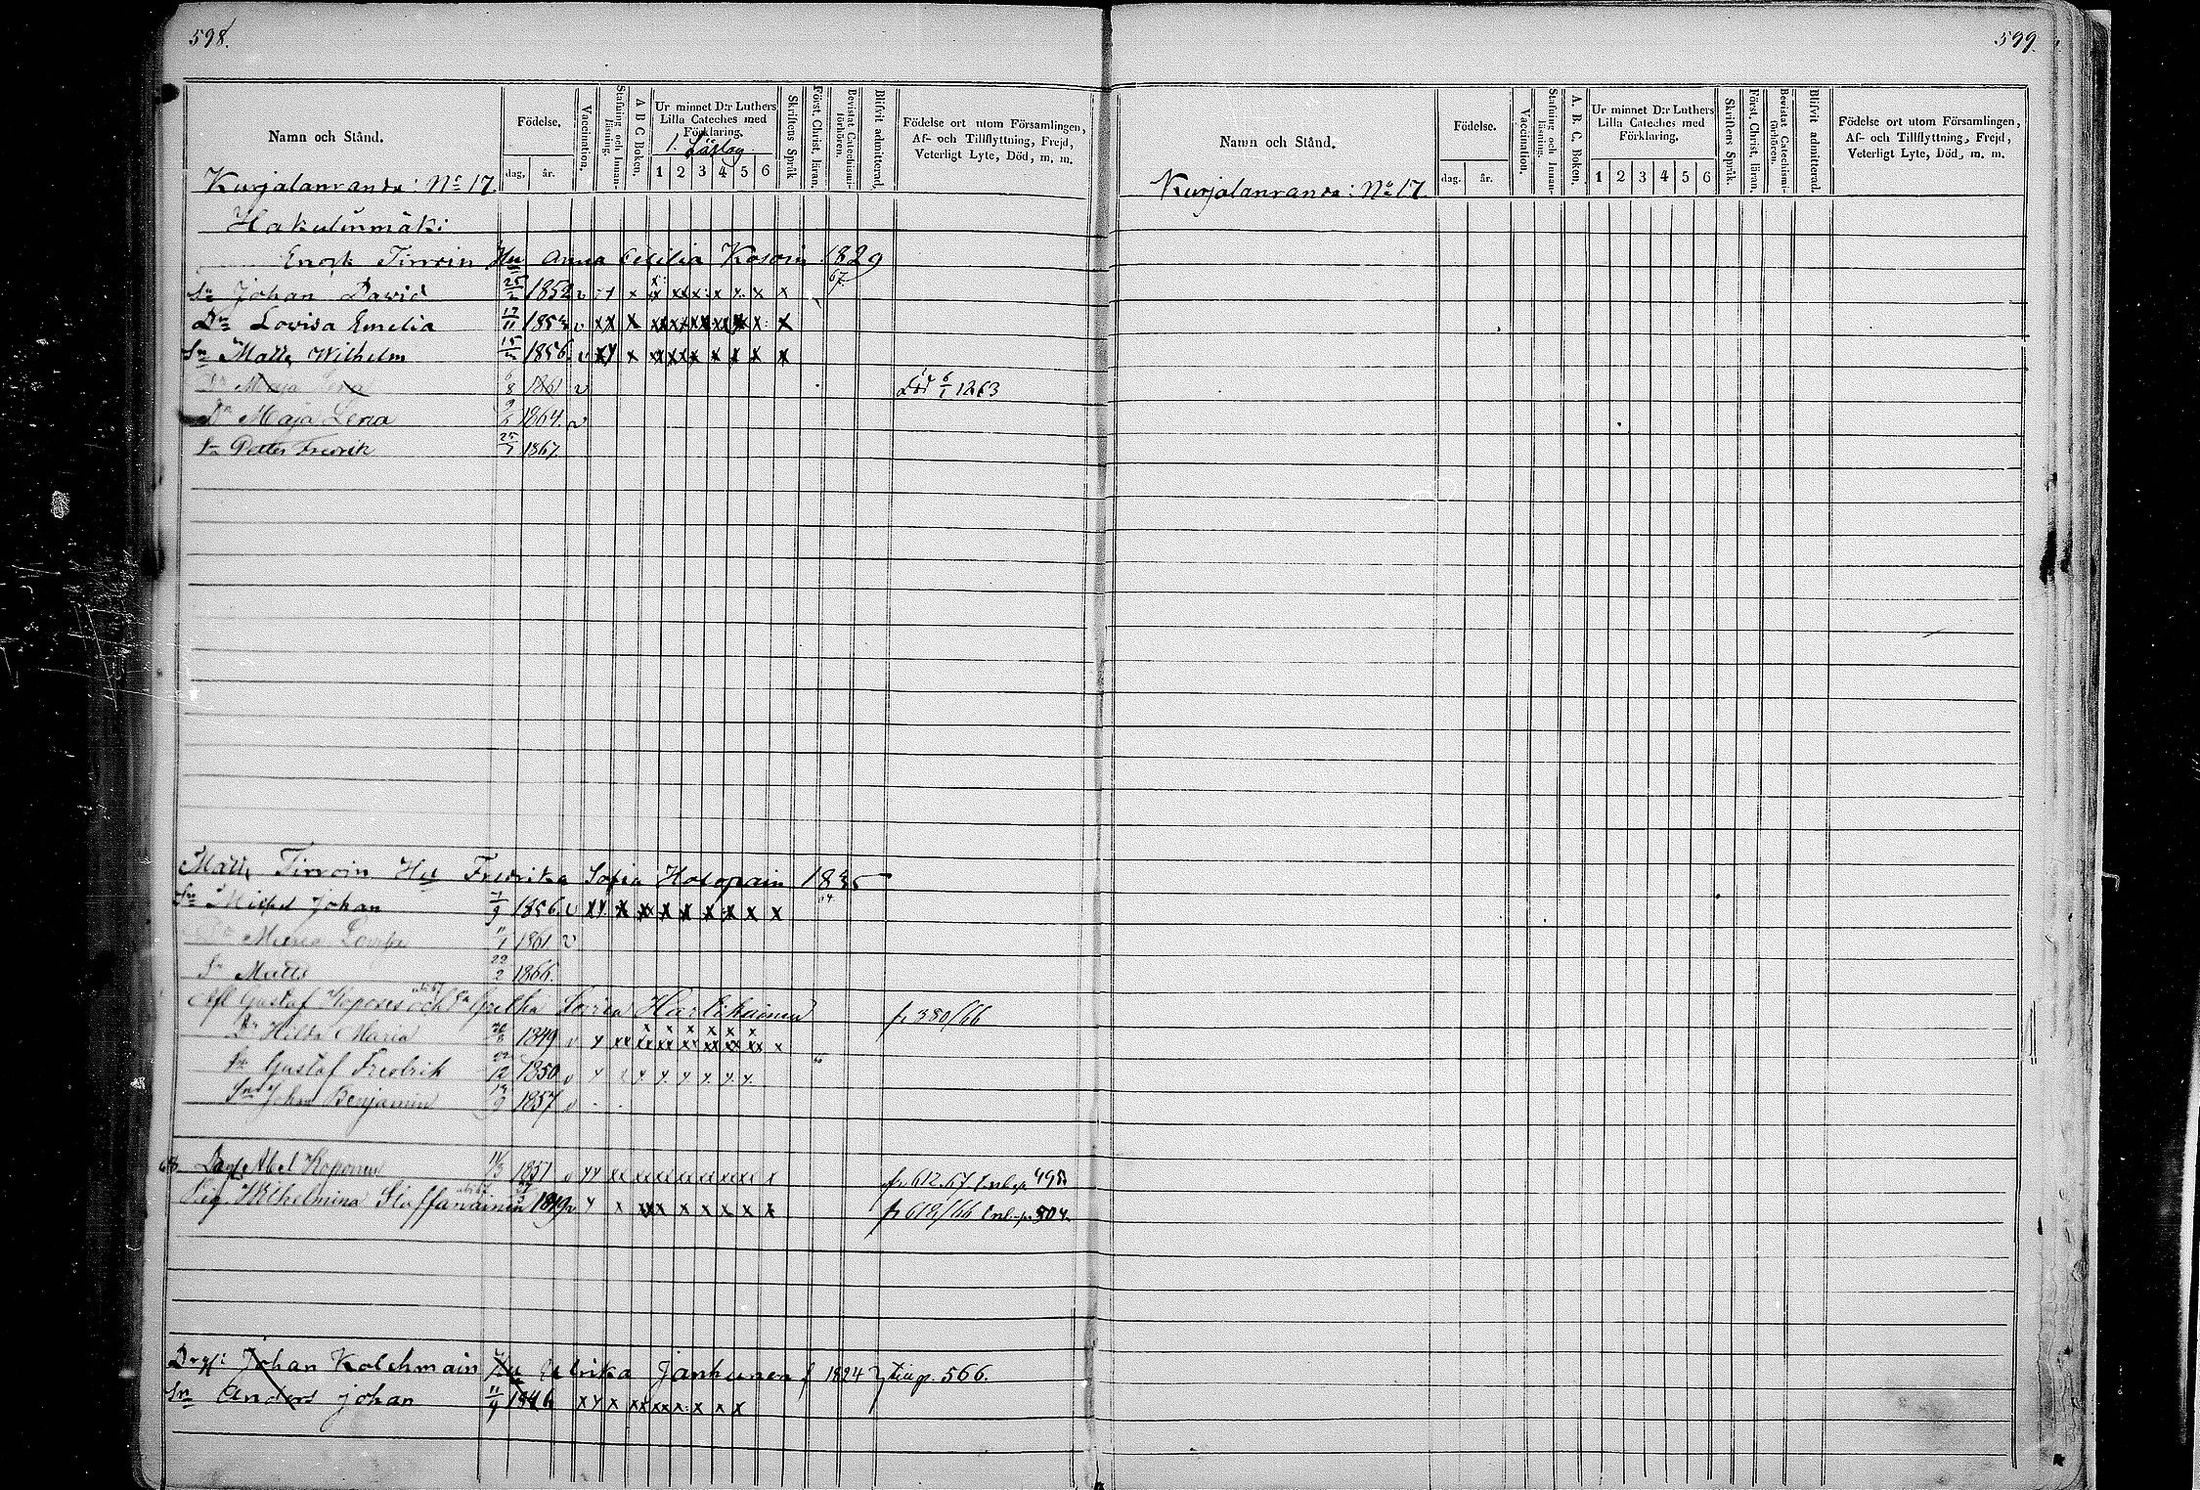 598.
599.
Namn och Stånd.
Födelse.
dag.
år.
Vaccination.
Stafning och Innan-läsning.
A B C Boken.
Ur minnet D:r Luthers
Lilla Cateches med
Förklaring.
1. Läslag
1 2 3 4 5 6
Skriftens Språk
Först. Christ. läran.
Bevistat Catechismi-förhören.
Blifvit admitterad.
Födelse ort utom Församlingen,
Af- och Tillflyttning, Frejd,
Veterligt Lyte, Död, m. m.
Kurjalanranda: No 17.
Hakulinmäki
Enock Tirroin Hu Anna Cecilia Kosoin 1829
Sn Johan David 1852 v
67.
Dr Lovisa Emelia 17/11 185 v
Sn Matts Wilhelm 1856. v
Maja Lena 6/8 1861 v Död 6/1 1863
Dr Maja Lena 1864. v
Sn Petter Fredrik 1867.
Matts Tirroin Hu Fredrika Sofia Holopain 1835
Sn Mikel Johan 1/9 1856. v
Maria 11/1 1861 v
Sn Matts 22/2 1866.
Afl Gustaf Koponen och En Gretha Lovisa fr 380/66
Dr Hilda Maria 1849 v
Sn Gustaf Fredrik 22/12 1850 v
Sn John Benjamin 1857 v
Abel Koponen 1851 v fr. 612.67.
Pig. Wilhelmina Staffanainen 1849 v fr 618/66
Drg: Johan Kolehmain Hu Ulrika Janhunen f 1824 566.
Sn Anders Johan 11/9 1846
Namn och Stånd.
Födelse.
dag.
år.
Vaccination.
Stafning och Innan-läsning.
A. B. C. Boken.
Ur minnet D:r Luthers
Lilla Cateches med
Förklaring.
1 2 3 4 5 6
Skriftens Språk.
Först. Christ. läran.
Bevistat Catechismi-förhören.
Blifvit admitterad.
Födelse ort utom Församlingen,
Af- och Tillflyttning, Frejd,
Veterligt Lyte, Död, m. m.
Kurjalanranda: No 17.